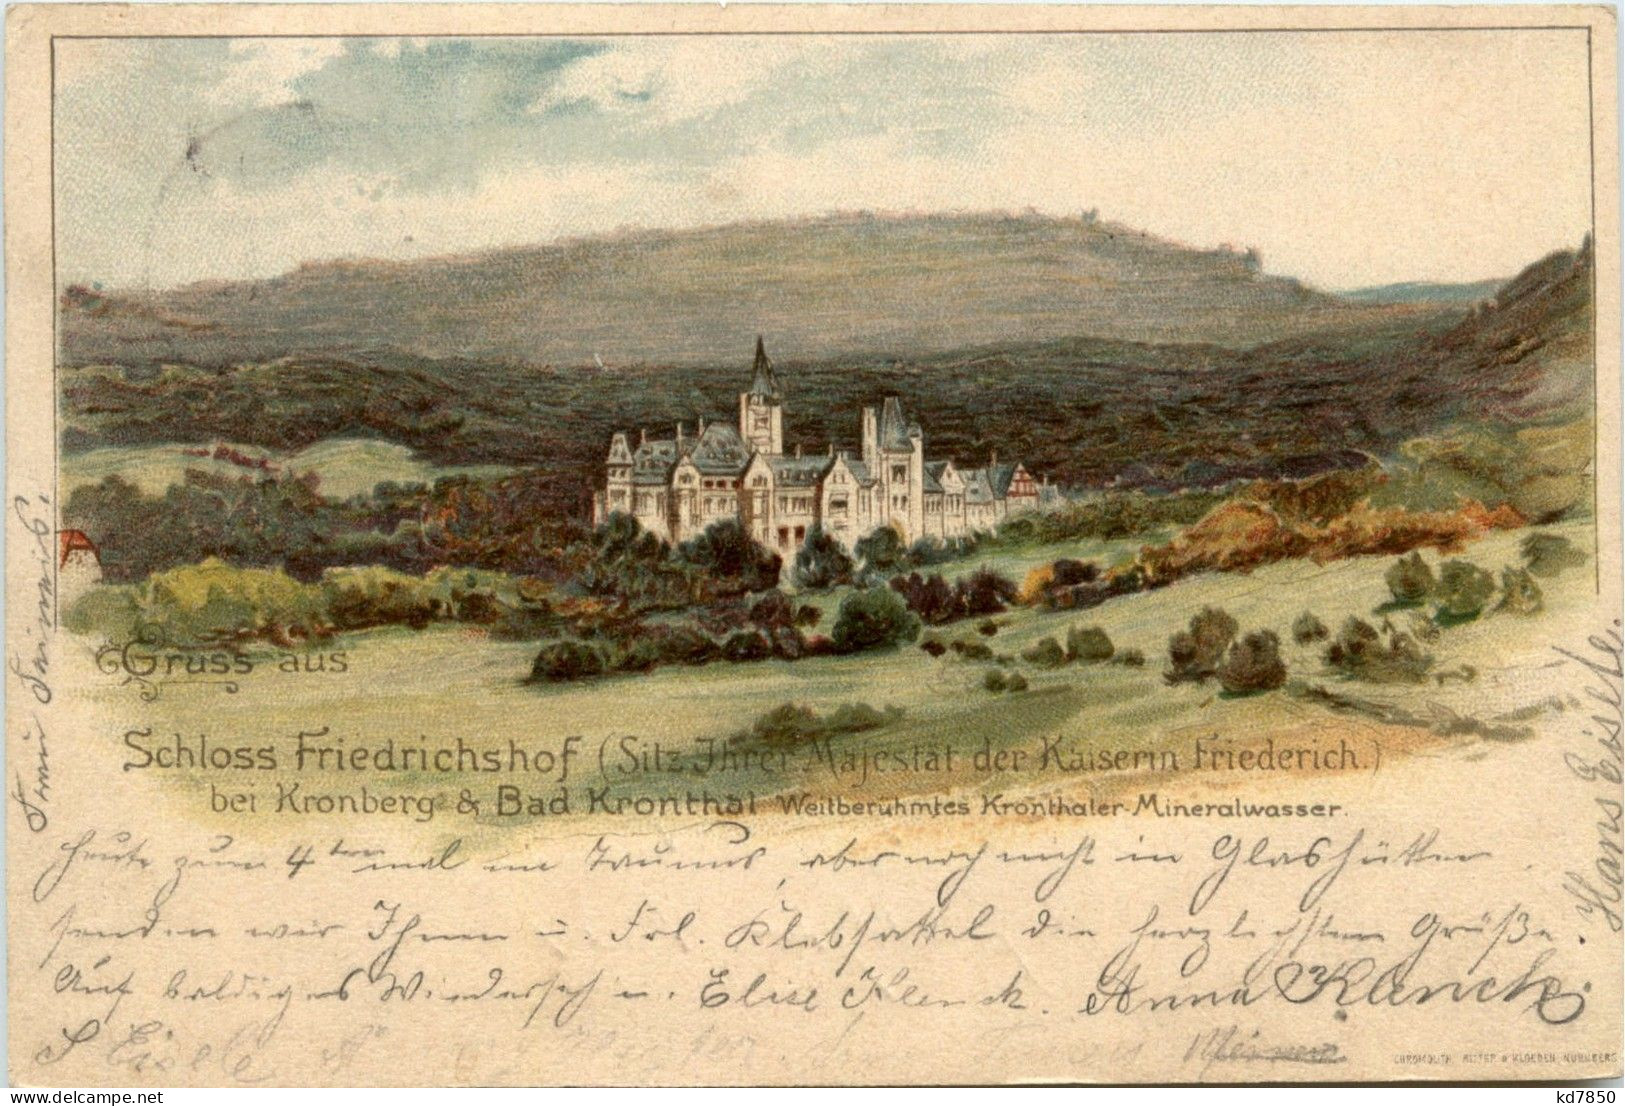 Gruss aus
Schloss Friedrichshof (Sitz Ihrer Majestät der Kaiserin Friederich.)
bei Kronberg & Bad Kronthal Weitberühmtes Kronthaler-Mineralwasser.
Heute zum 4ten mal im Taunus, aber noch nicht in Glashütten,
senden wir Ihnen u. Frl. Klebsattel die herzlichsten Grüße.
Auf baldiges Wiedersehen. Elise Klenck. Anna Klenck.
S Eisele
Hans Eisele.
CHROMOLITH. RITTER & KLOEDEN, NÜRNBERG
kd7850